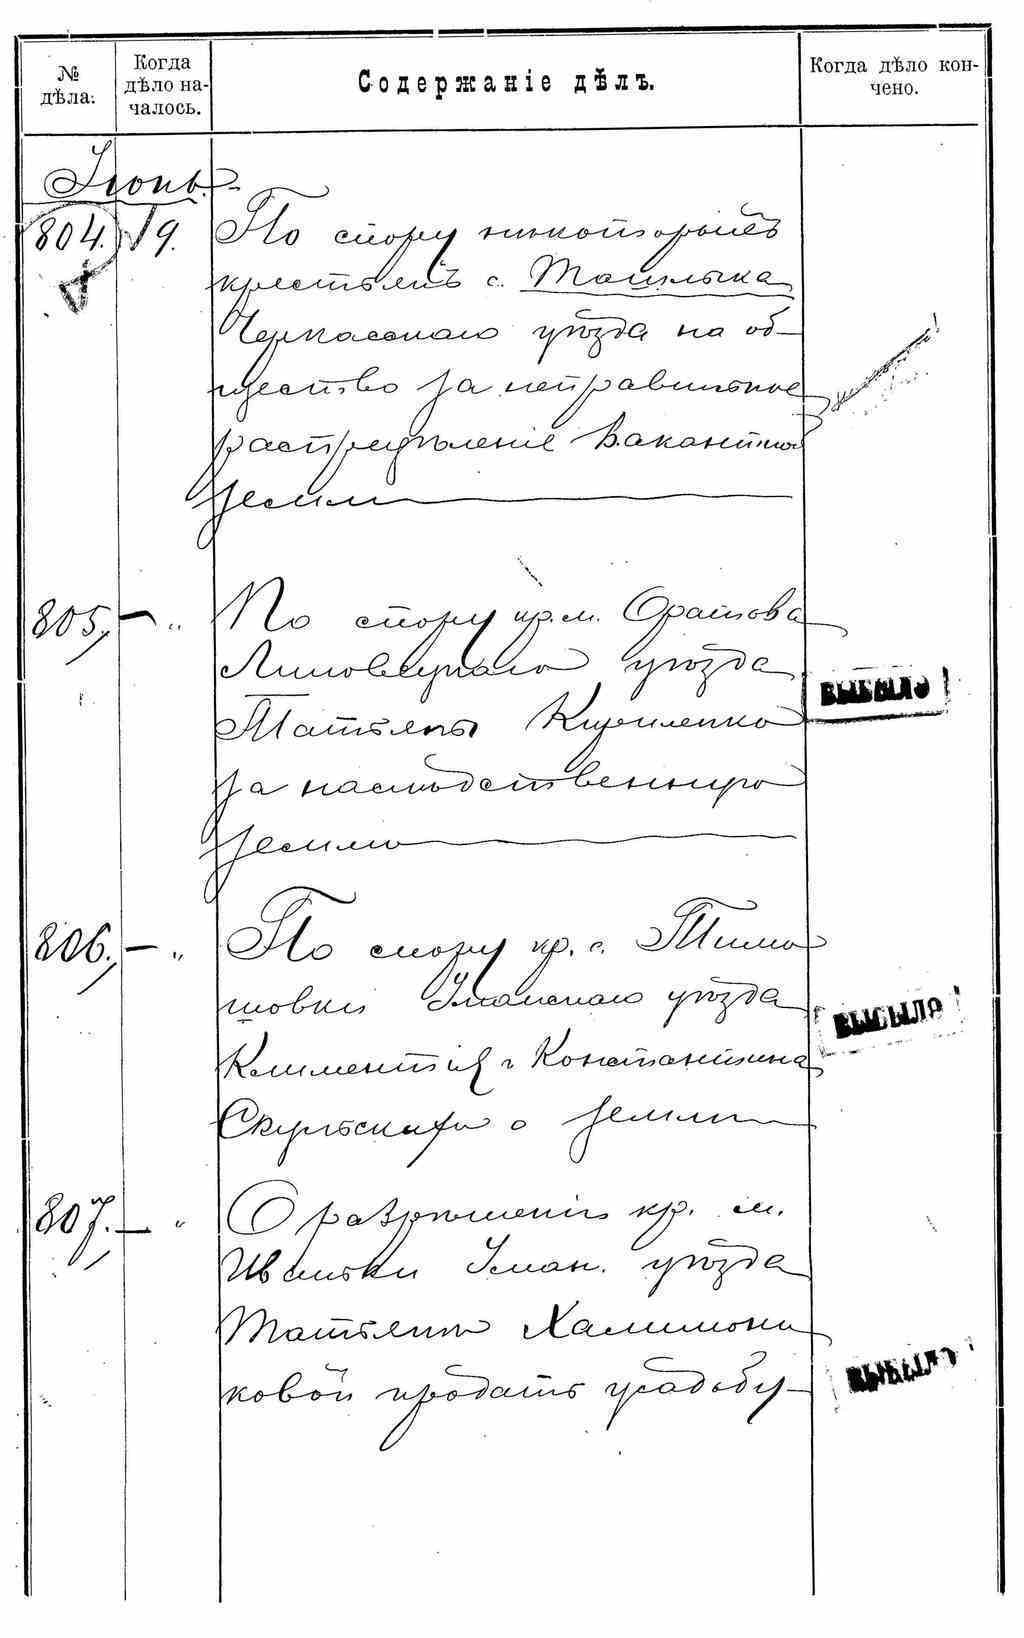 № дѣла.
Когда дѣло на-
чалось.
Содержаніе дѣлъ.
Когда дѣло кон-
чено.
Іюнь.
804. 19. По спору нѣкоторыхъ
крестьянъ с. Ташлыка
Черкасскаго уѣзда на об-
щество за неправильное
распредѣленіе вакантной
земли
805, — „ По спору кр. м. Оратова
Липовецкаго уѣзда
Татьяны Кириленко
за наслѣдственную
землю
806. — „ По спору кр. с. Тимо
шовки Уманскаго уѣзда
Климентія и Константина
о земли
807. — „ О разрѣшеніи кр. м.
Иваньки Уман. уѣзда
Татьяны Халимони
ковой продать усадьбу
ВЫБЫЛО
ВЫБЫЛО
ВЫБЫЛО